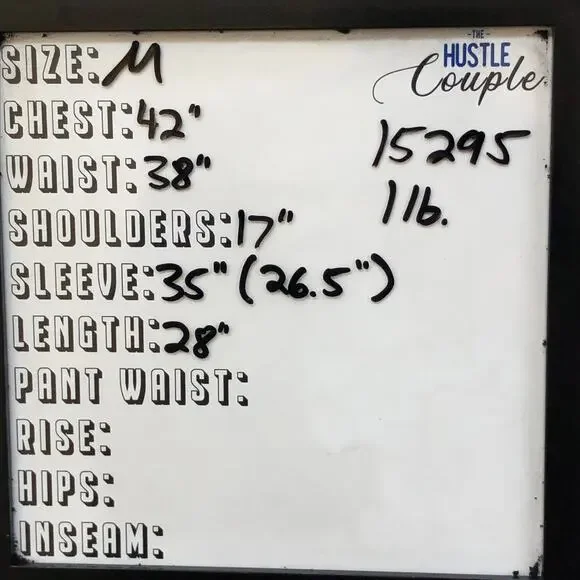 -THE-
HUSTLE
Couple
SIZE: M
CHEST: 42"
WAIST: 38"
SHOULDERS: 17"
SLEEVE: 35" (26.5")
LENGTH: 28"
PANT WAIST:
RISE:
HIPS:
INSEAM:
15295
1 lb.